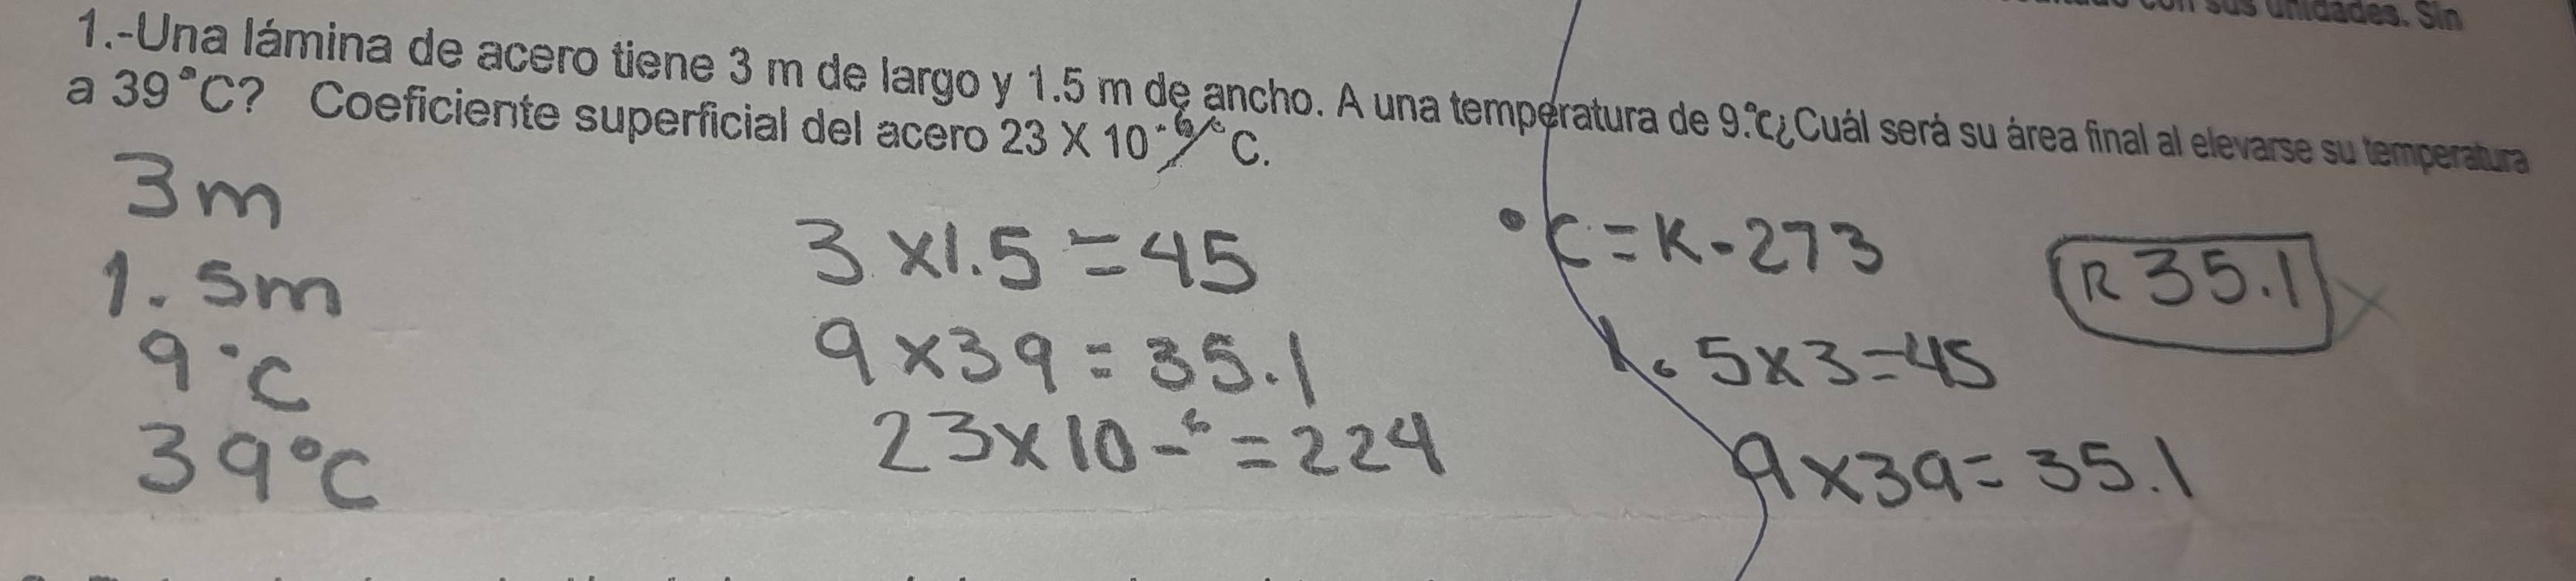 con sus unidades. Sin
1.-Una lámina de acero tiene 3 m de largo y 1.5 m de ancho. A una temperatura de 9.°c¿Cuál será su área final al elevarse su temperatura
a 39°C? Coeficiente superficial del acero 23 X 10-6/°C.
3m
1.5m
9°C
39°C
3 x1.5=45
9x39=35.1
23x10-6=224
°C=K-273
1.5x3=45
9x39=35.1
R 35.1